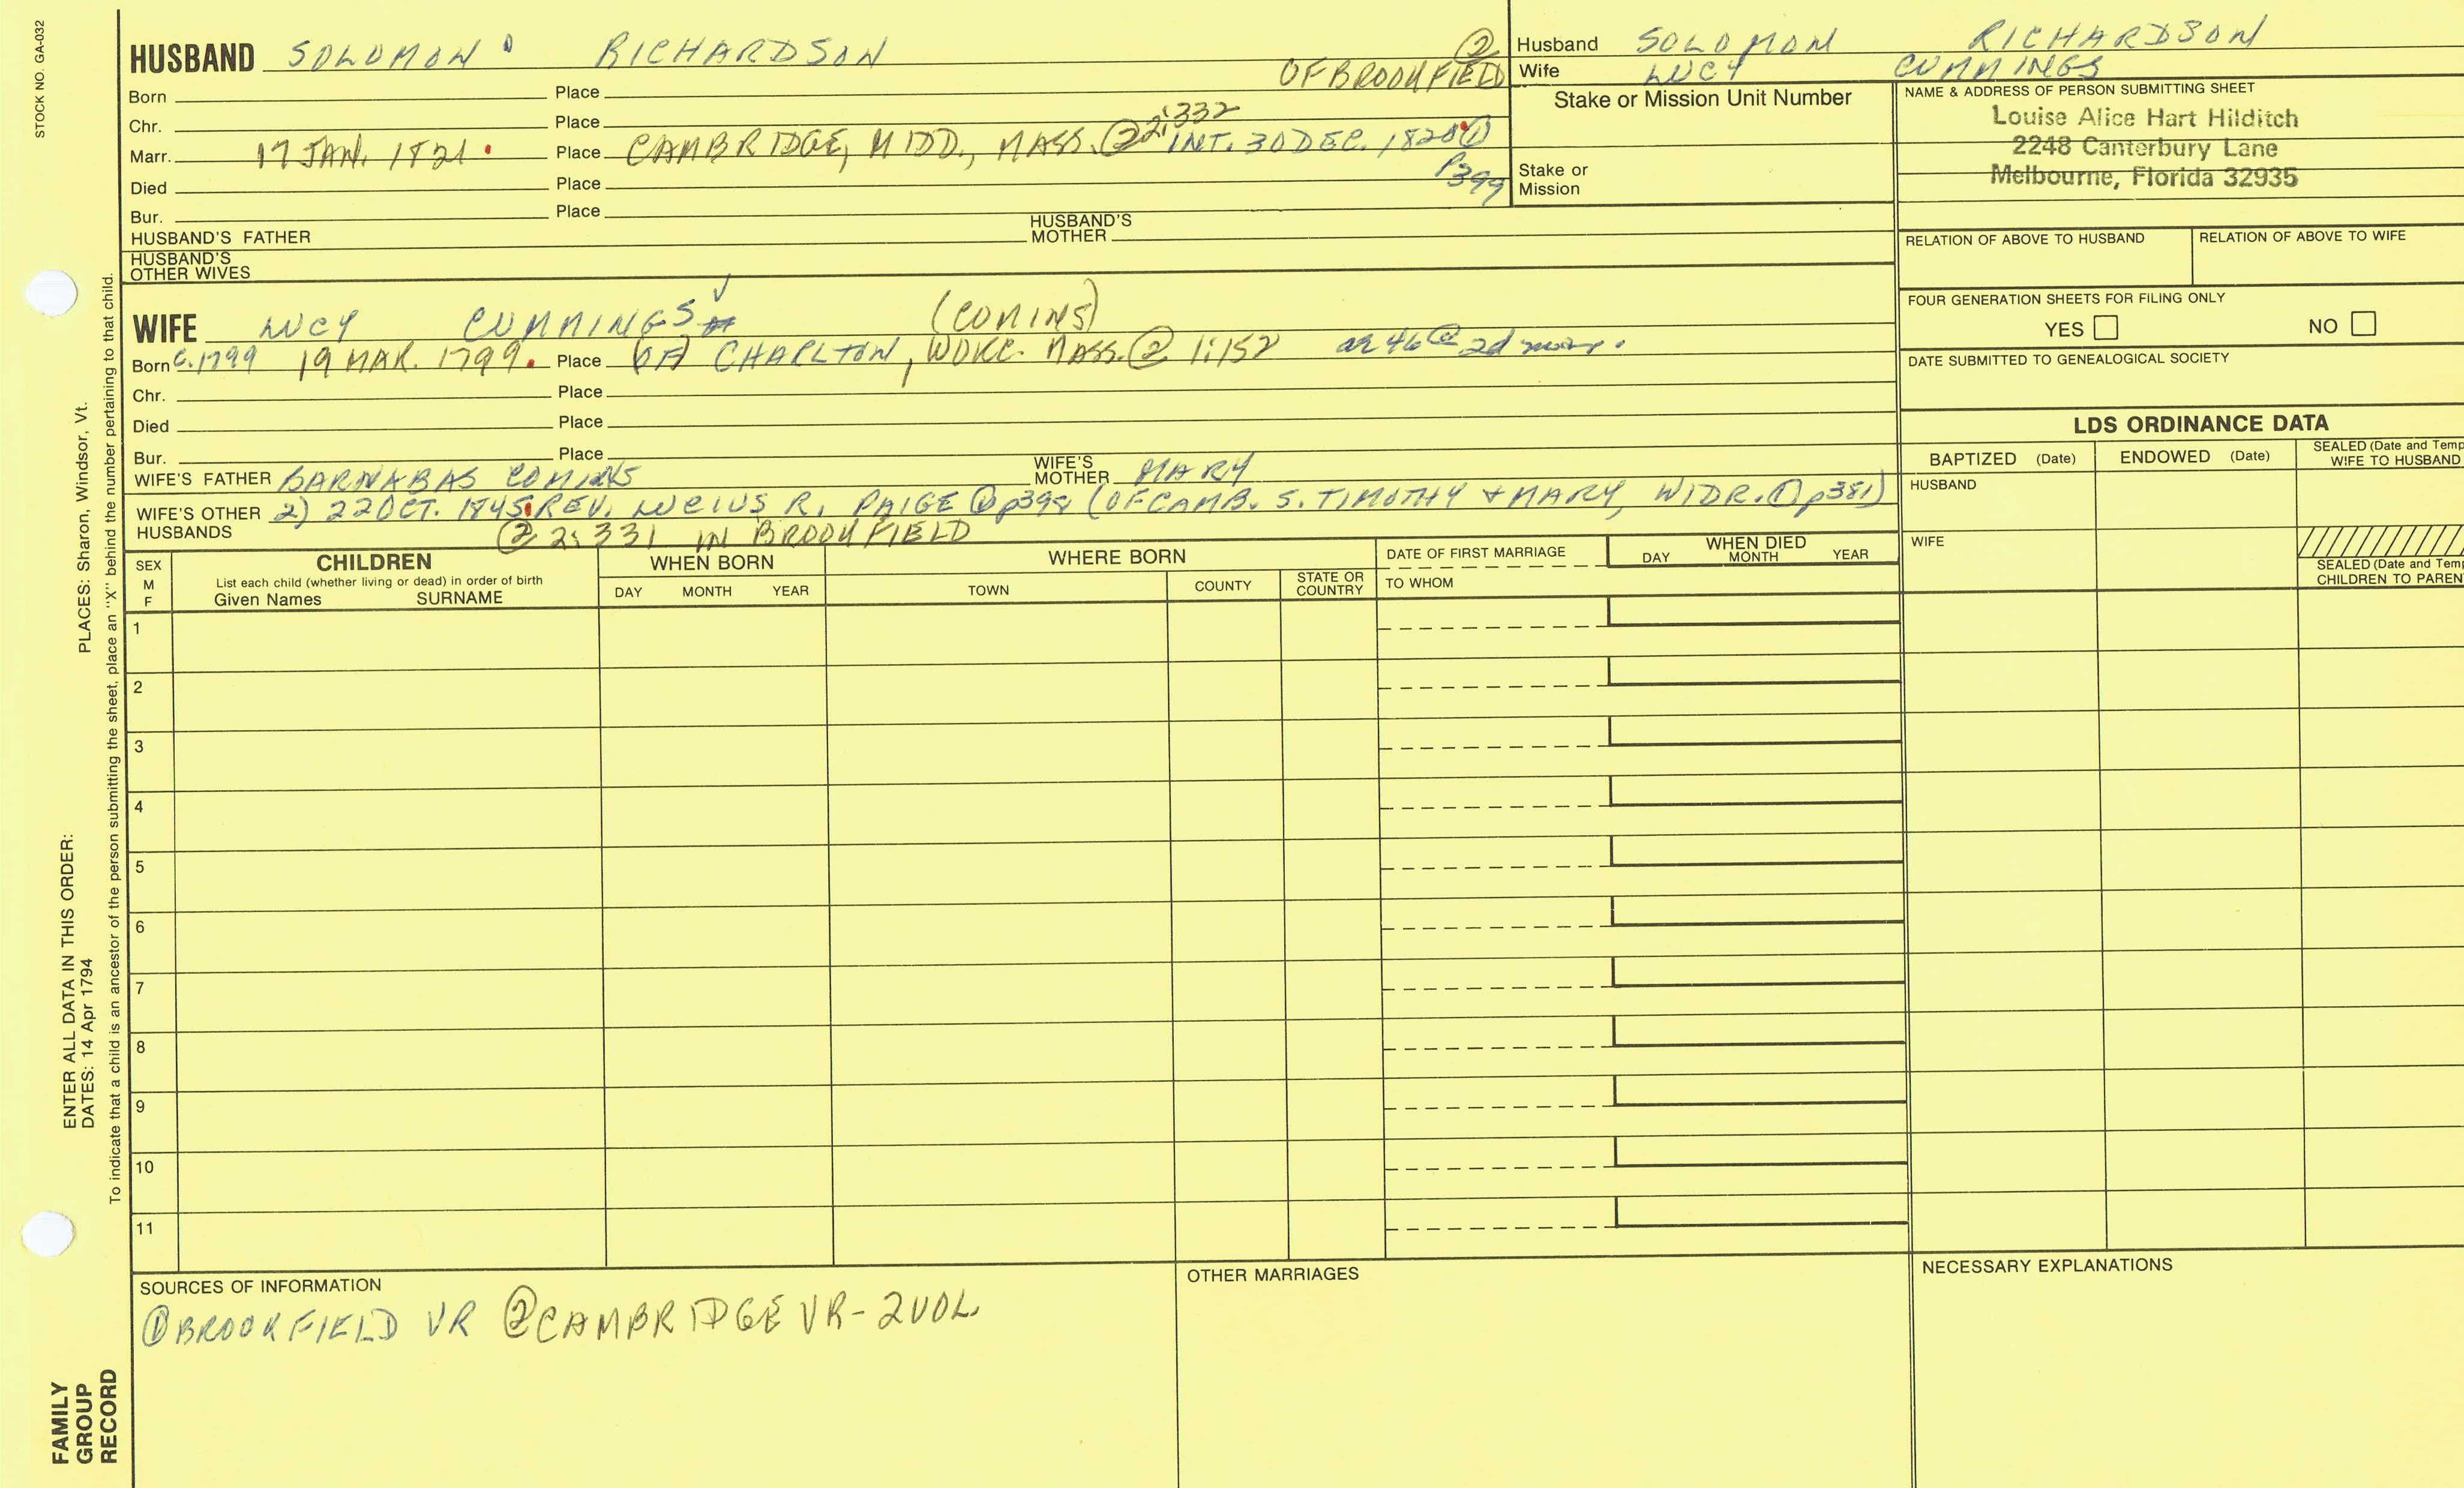 STOCK NO. GA-032
HUSBAND SOLOMON RICHARDSON
② OF BROOKFIELD
Born Place
Chr. Place
Marr. 17 JAN. 1821 Place CAMBRIDGE, MIDD., MASS. ② 2:332 INT. 30 DEC. 1820 ① P399
Died Place
Bur. Place
HUSBAND'S FATHER HUSBAND'S MOTHER
HUSBAND'S OTHER WIVES
WIFE LUCY CUMMINGS (COMINS)
Born C.1799 19 MAR. 1799. Place OF CHARLTON, WORC. MASS. ② 1:152 ae 46 @ 2d marr.
Chr. Place
Died Place
Bur. Place
WIFE'S FATHER BARNABAS COMINS WIFE'S MOTHER MARY
WIFE'S OTHER HUSBANDS 2) 22 OCT. 1845 REV. LUCIUS R. PAIGE ① p399 (OF CAMB. S. TIMOTHY + MARY, WIDR. ① p381)
② 2:331 IN BROOKFIELD
Husband SOLOMON RICHARDSON
Wife LUCY CUMMINGS
Stake or Mission Unit Number
Stake or Mission
NAME & ADDRESS OF PERSON SUBMITTING SHEET
Louise Alice Hart Hilditch
2248 Canterbury Lane
Melbourne, Florida 32935
RELATION OF ABOVE TO HUSBAND RELATION OF ABOVE TO WIFE
FOUR GENERATION SHEETS FOR FILING ONLY
YES NO
DATE SUBMITTED TO GENEALOGICAL SOCIETY
LDS ORDINANCE DATA
BAPTIZED (Date) ENDOWED (Date) SEALED (Date and Temp
WIFE TO HUSBAND
HUSBAND
WIFE
SEALED (Date and Temp
CHILDREN TO PAREN
SEX
M
F
CHILDREN
List each child (whether living or dead) in order of birth
Given Names SURNAME
WHEN BORN
DAY MONTH YEAR
WHERE BORN
TOWN COUNTY STATE OR COUNTRY
DATE OF FIRST MARRIAGE
TO WHOM
WHEN DIED
DAY MONTH YEAR
1
2
3
4
5
6
7
8
9
10
11
SOURCES OF INFORMATION
① BROOKFIELD VR ② CAMBRIDGE VR - 2 VOL.
OTHER MARRIAGES
NECESSARY EXPLANATIONS
PLACES: Sharon, Windsor, Vt.
To indicate that a child is an ancestor of the person submitting the sheet, place an "X" behind the number pertaining to that child.
ENTER ALL DATA IN THIS ORDER:
DATES: 14 Apr 1794
FAMILY
GROUP
RECORD